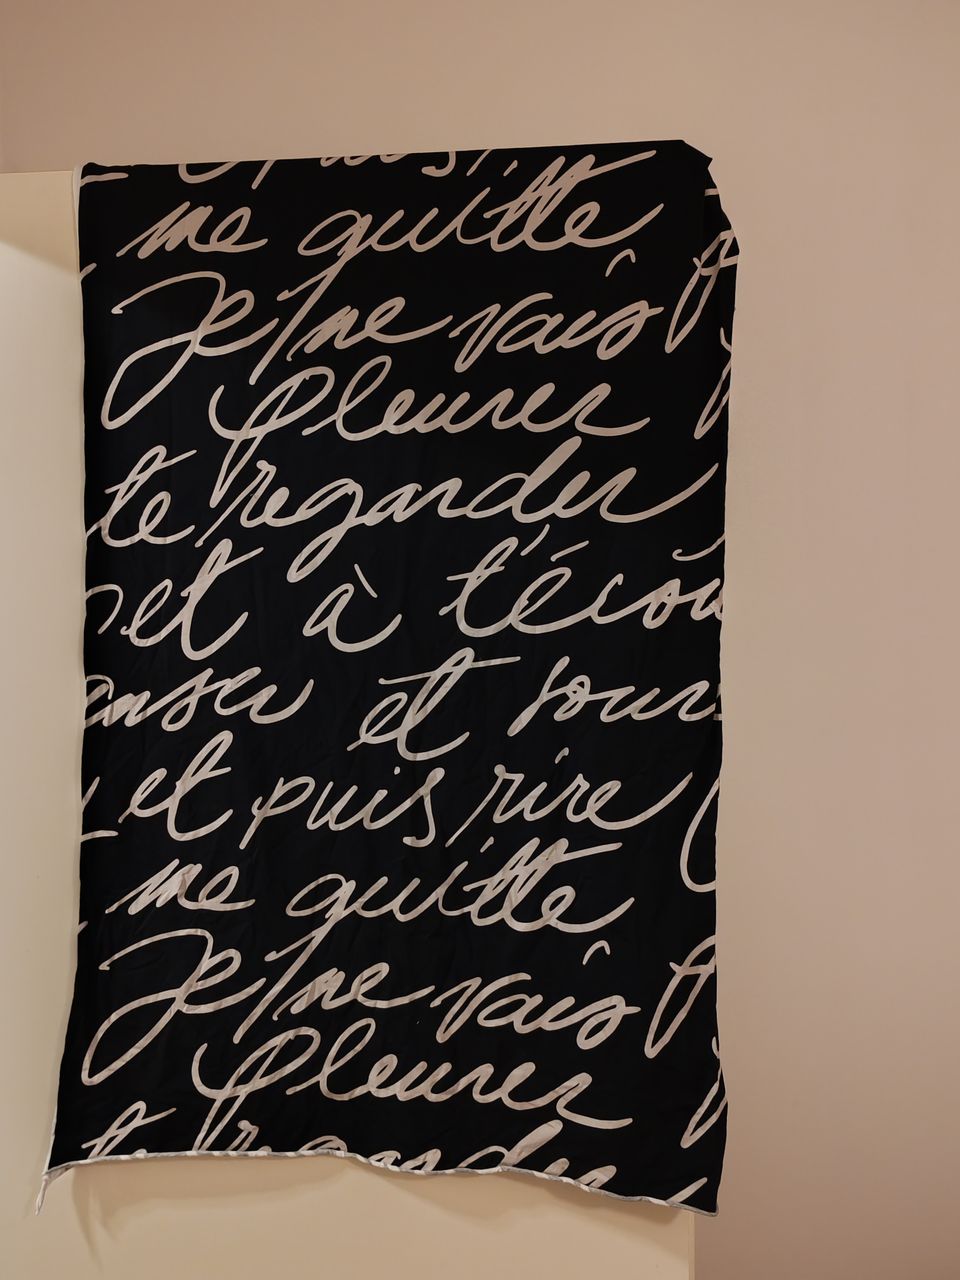 me quitte
Je ne vais
pleurer
te regarder
et à t'écou
enser et sour
et puis rire
me quitte
Je ne vais
pleurer
te regarder